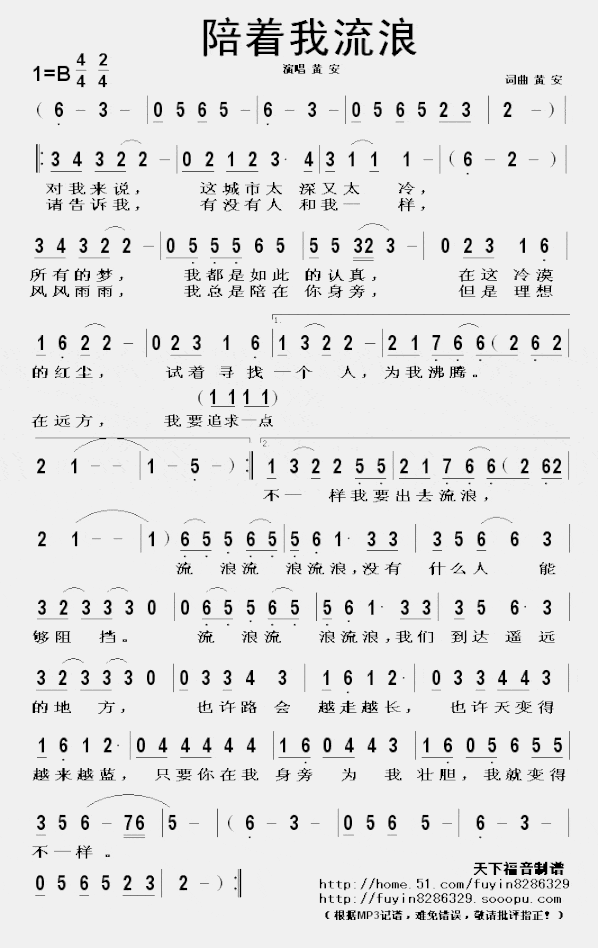 陪着我流浪
1=B 4/4 2/4
演唱 黄 安
词曲 黄 安
( 6 - 3 - | 0 5 6 5 - | 6 - 3 - | 0 5 6 5 2 3 2 - )
‖: 3 4 3 2 2 - | 0 2 1 2 3· 4 | 3 1 1 1 - | ( 6 - 2 - )
对我来说, 这城市太 深又太 冷,
请告诉我, 有没有人 和我一 样,
3 4 3 2 2 - | 0 5 5 5 6 5 | 5 5 32 3 - | 0 2 3 1 6
所有的梦, 我都是如此 的认真, 在这 冷漠
风风雨雨, 我总是陪在 你身旁, 但是 理想
1.
1 6 2 2 - | 0 2 3 1 6 | 1 3 2 2 - | 2 1 7 6 6 ( 2 6 2
的红尘, 试着 寻找 一个 人, 为我 沸腾。
( 1 1 1 1 )
在远方, 我要追求一点
2.
2 1 - - | 1 - 5 - ) :‖ 1 3 2 2 5 5 | 2 1 7 6 6 ( 2 62
不一 样我要出去流浪,
2 1 - - | 1 ) 6 5 5 6 5 | 5 6 1· 3 3 | 3 5 6 6 3
流 浪流 浪流浪,没有 什么人 能
3 2 3 3 3 0 | 0 6 5 5 6 5 | 5 6 1· 3 3 | 3 5 6· 3
够阻 挡。 流 浪流 浪流浪,我们 到达 遥远
3 2 3 3 3 0 | 0 3 3 4 3 | 1 6 1 2· | 0 3 3 4 4 3
的地 方, 也许路 会 越走越长, 也许天变得
1 6 1 2· | 0 4 4 4 4 4 | 1 6 0 4 4 3 | 1 6 0 5 6 5 5
越来越蓝, 只要你在我 身旁 为 我 壮胆,我就变得
3 5 6 - 76 | 5 - ( 6 - 3 - | 0 5 6 5 - | 6 - 3 -
不一样。
0 5 6 5 2 3 | 2 - ) :‖
天下福音制谱
http://home.51.com/fuyin8286329
http://fuyin8286329.sooopu.com
(根据MP3记谱,难免错误,敬请批评指正!)